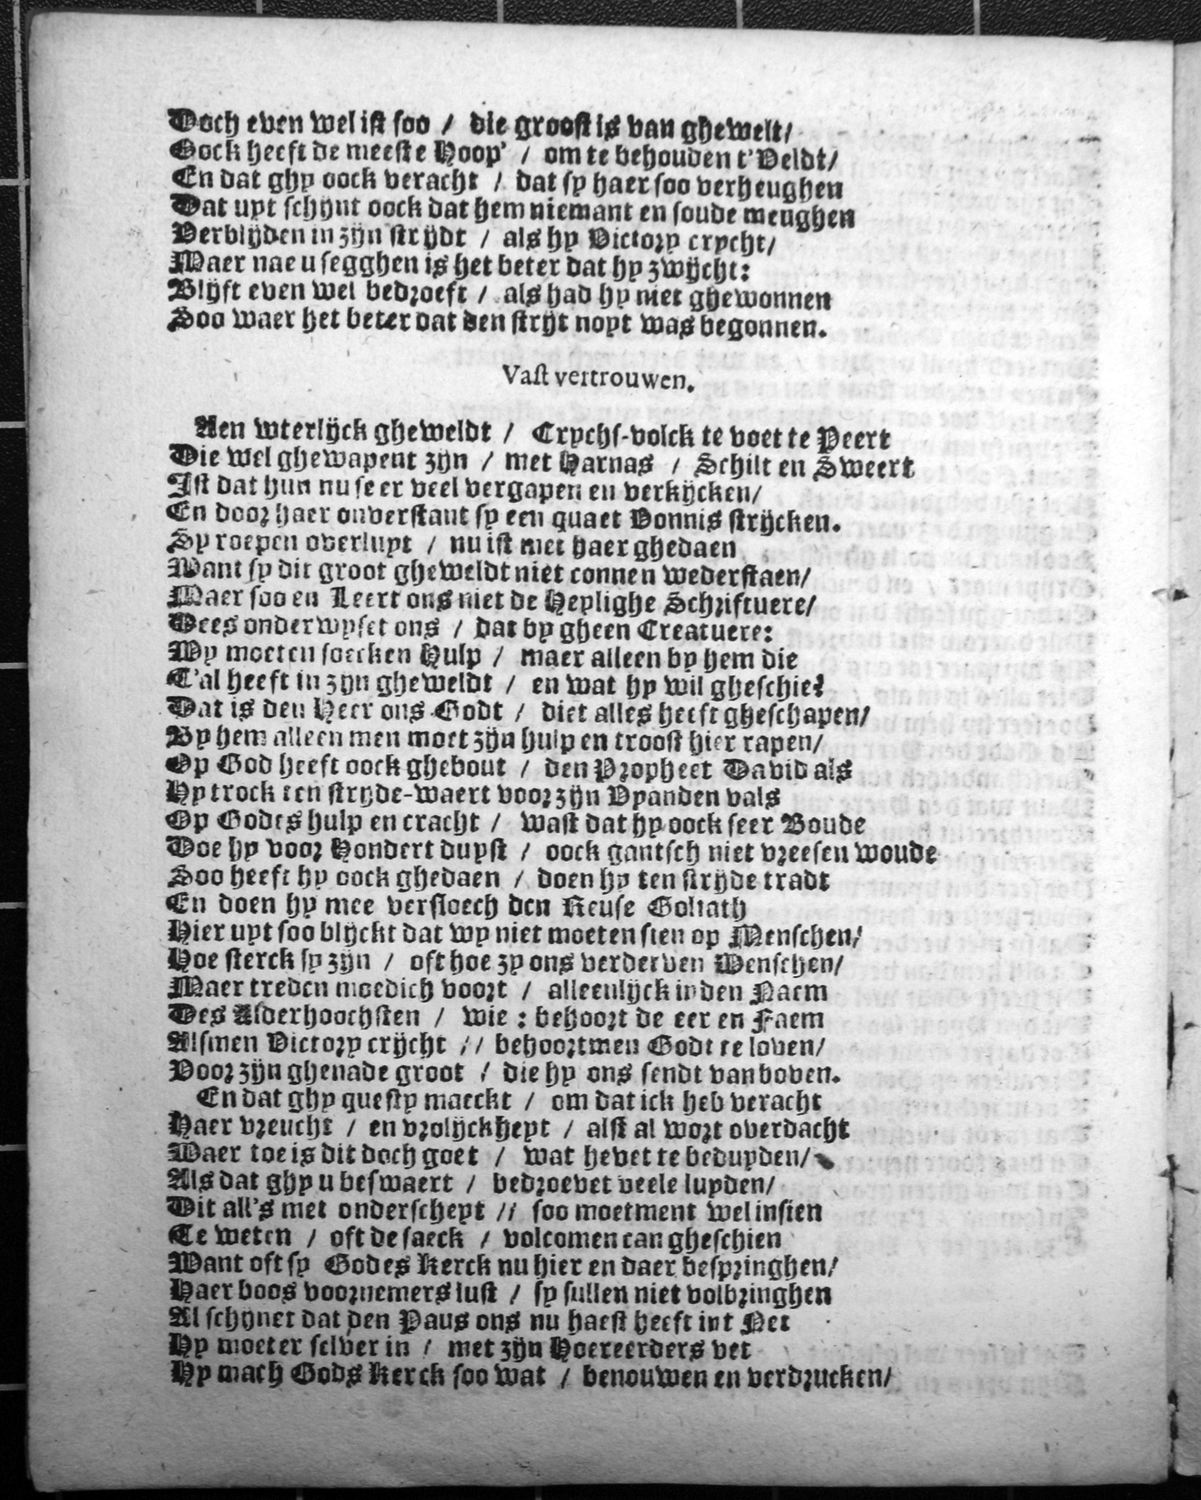 Doch even wel ist soo / die groost is van ghewelt/
Oock heeft de meeste Hoop' / om te behouden t'Veldt/
En dat ghy oock veracht / dat sy haer soo verheughen
Dat uyt schijnt oock dat hem niemant en soude meughen
Verblijden in zijn strijdt / als hy Victory crycht/
Maer nae u segghen is het beter dat hy zwijcht:
Blijft even wel bedroeft / als had hy niet ghewonnen
Soo waer het beter dat den strijt noyt was begonnen.
Vast vertrouwen.
Aen wterlijck gheweldt / Crychs-volck te voet te Peert
Die wel ghewapent zijn / met Harnas / Schilt en Sweert
Ist dat hun nu seer veel vergapen en verkijcken/
En door haer onverstant sy een quaet Vonnis strijcken.
Sy roepen overluyt / nu ist met haer ghedaen
Want sy dit groot gheweldt niet connen wederstaen/
Maer soo en Leert ons niet de Heylighe Schriftuere/
Dees onderwyset ons / dat by gheen Creatuere:
Wy moeten soecken Hulp / maer alleen by hem die
T'al heeft in zijn gheweldt / en wat hy wil gheschie:
Dat is den Heer ons Godt / diet alles heeft gheschapen/
By hem alleen men moet zijn hulp en troost hier rapen/
Op God heeft oock ghebout / den Propheet David als
Hy trock ten stryde-waert voor zijn Vyanden vals
Op Godes hulp en cracht / wast dat hy oock seer Boude
Doe hy voor Hondert duyst / oock gantsch niet vreesen woude
Soo heeft hy oock ghedaen / doen hy ten strijde tradt
En doen hy mee versloech den Reuse Goliath
Hier uyt soo blijckt dat wy niet moeten sien op Menschen/
Hoe sterck sy zijn / oft hoe zy ons verderven Wenschen/
Maer treden moedich voort / alleenlijck inden Naem
Des Alderhoochsten / wie : behoort de eer en Faem
Alsmen Victory crijcht // behoortmen Godt te loven/
Voor zijn ghenade groot / die hy ons sendt van boven.
En dat ghy questy maeckt / om dat ick heb veracht
Haer vreucht / en vrolijckheyt / alst al wort overdacht
Waer toe is dit doch goet / wat hevet te beduyden/
Als dat ghy u beswaert / bedroevet veele luyden/
Dit all's met onderscheyt // soo moetment wel insien
Te weten / oft de saeck / volcomen can gheschien
Want oft sy Godes Kerck nu hier en daer bespringhen/
Haer boos voornemers lust / sy sullen niet volbringhen
Al schijnet dat den Paus ons nu haest heeft int Net
Hy moeter selver in / met zijn Hoereerders vet
Hy mach Gods Kerck soo wat / benouwen en verdrucken/